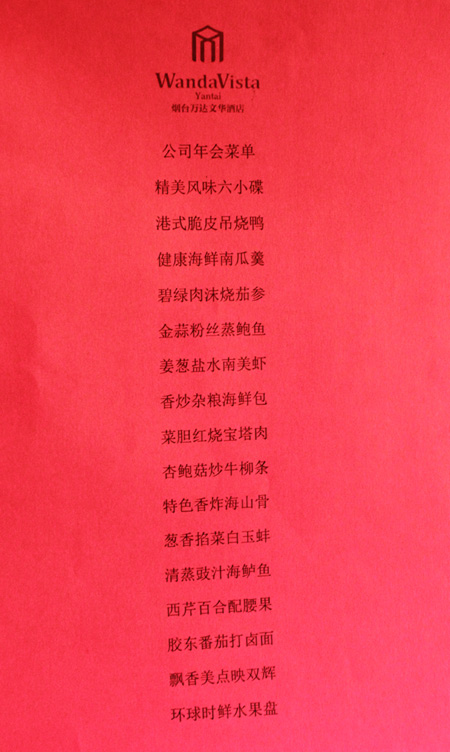 WandaVista
Yantai
烟台万达文华酒店
公司年会菜单
精美风味六小碟
港式脆皮吊烧鸭
健康海鲜南瓜羹
碧绿肉沫烧茄参
金蒜粉丝蒸鲍鱼
姜葱盐水南美虾
香炒杂粮海鲜包
菜胆红烧宝塔肉
杏鲍菇炒牛柳条
特色香炸海山骨
葱香掐菜白玉蚌
清蒸豉汁海鲈鱼
西芹百合配腰果
胶东番茄打卤面
飘香美点映双辉
环球时鲜水果盘